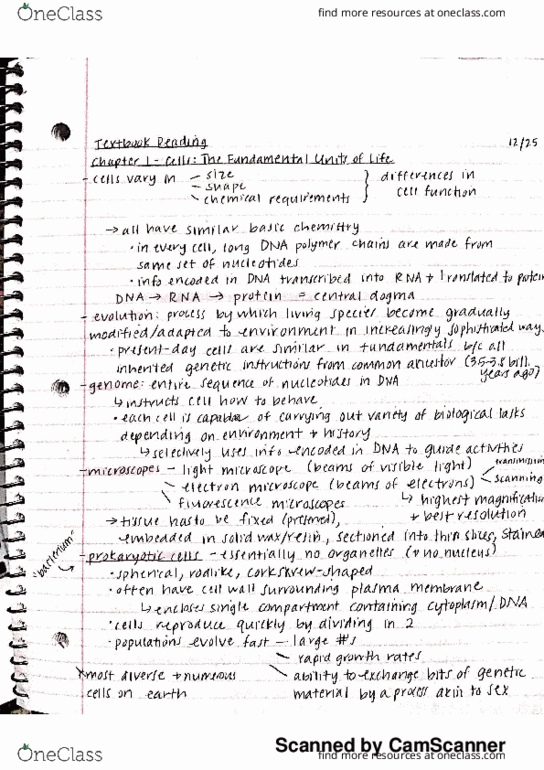 OneClass
find more resources at oneclass.com
Textbook Reading
12/25
Chapter 1 - Cells: The Fundamental Units of Life
- cells vary in - size
- shape
- chemical requirements
} differences in
cell function
→ all have similar basic chemistry
• in every cell, long DNA polymer chains are made from
same set of nucleotides
• info encoded in DNA transcribed into RNA + translated to protein
DNA → RNA → protein = central dogma
- evolution: process by which living species become gradually
modified/adapted to environment in increasingly sophisticated way
• present-day cells are similar in fundamentals b/c all
inherited genetic instructions from common ancestor (3.5-3.8 bill.
years ago)
- genome: entire sequence of nucleotides in DNA
↳ instructs cell how to behave
• each cell is capable of carrying out variety of biological tasks
depending on environment + history
↳ selectively uses info encoded in DNA to guide activities
- microscopes - light microscope (beams of visible light)
- electron microscope (beams of electrons) < transmission
scanning
- fluorescence microscopes
↳ highest magnification
+ best resolution
→ tissue has to be fixed (preserved),
embedded in solid wax/resin, sectioned into thin slices, stained
"bacterium"
- prokaryotic cells - essentially no organelles (+ no nucleus)
• spherical, rodlike, corkskrew-shaped
• often have cell wall surrounding plasma membrane
↳ encloses single compartment containing cytoplasm/DNA
• cells reproduce quickly by dividing in 2
• populations evolve fast - large #s
- rapid growth rates
- ability to exchange bits of genetic
material by a process akin to sex
* most diverse + numerous
cells on earth
Scanned by CamScanner
OneClass
find more resources at oneclass.com